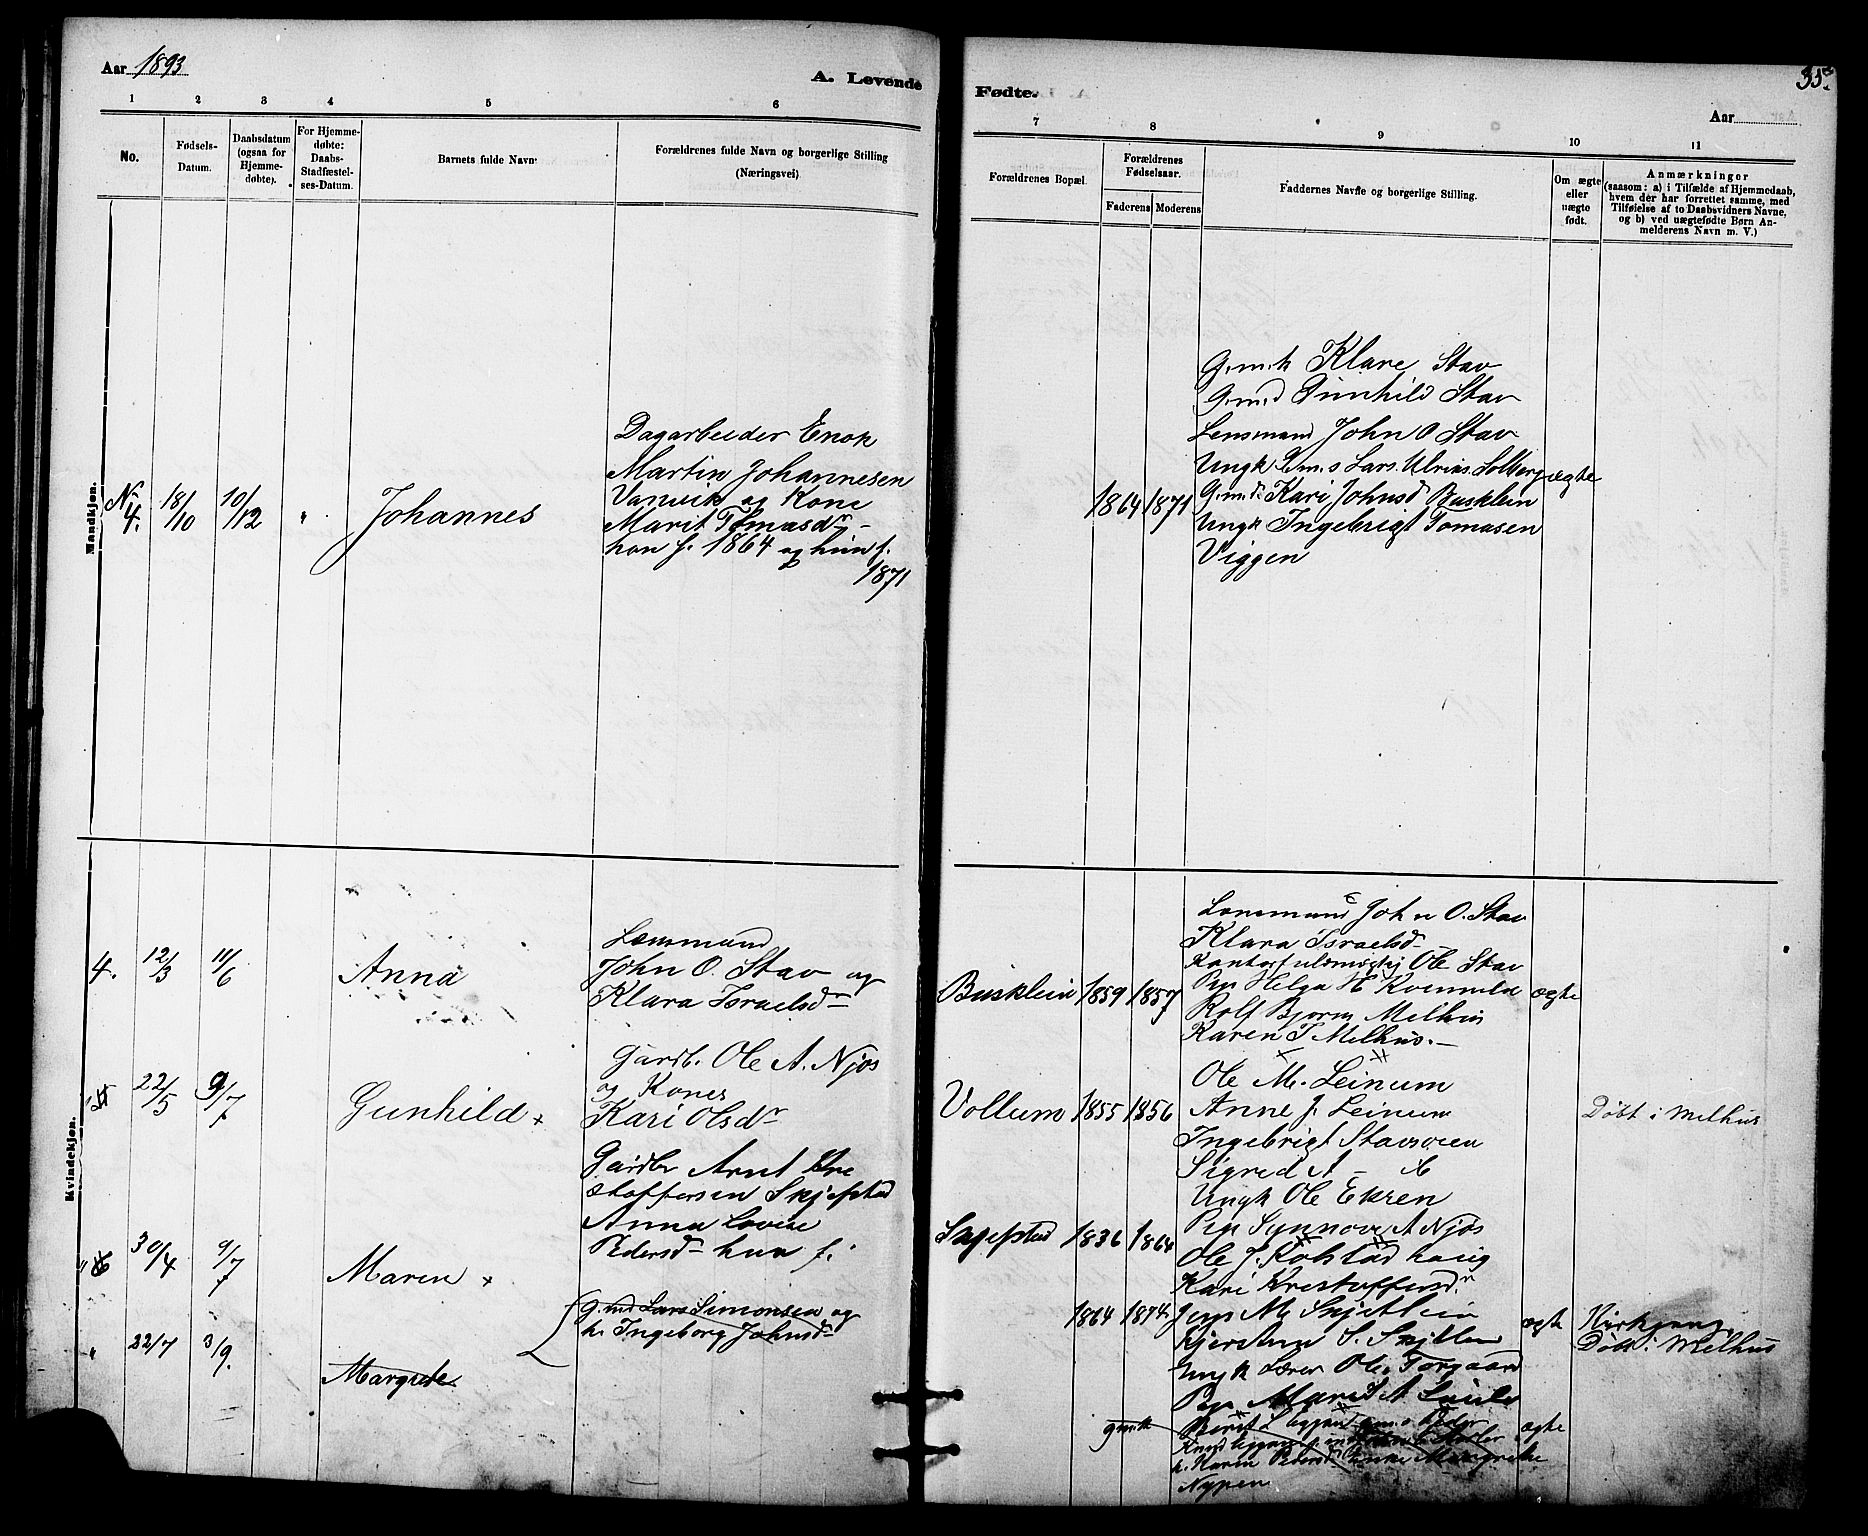 Aar 1893
A. Levende
1 2 3 4 5 6
No.
Fødsels-
Datum.
Daabsdatum
(ogsaa for
Hjemme-
døbte).
For Hjemme-
døbte:
Daabs-
Stadfæstel-
ses-Datum.
Barnets fulde Navn.
Forældrenes fulde Navn og borgerlige Stilling
(Næringsvei).
Mandkjøn.
4. 18/10 10/12 " Johannes
Dagarbeider Enok
Martin Johannesen
og Kone
Marit Tomasdr
han f. 1864 og hun f.
1871
Kvindekjøn.
4. 12/3 11/6 Anna
Lensmand
John O. Stav og
Klara Israelsdr
22/5 9/7 Gunhild
Gardbr. Ole A. Njøs
og Kones
Kari Olsdr
30/4 9/7 Maren
Gardbr Arnt Kre
stoffersen Skjefstad
Anna Lovise
Pedersdr hun f.
" 22/7 3/9. Margrete
G.md Lars Simonsen og
h. Ingeborg Johnsdr
Fødte.
Aar
7 8 9 10 11
Forældrenes Bopæl.
Forældrenes
Fødselsaar.
Faderens Moderens
Faddernes Navne og borgerlige Stilling.
Om ægte
eller
uægte
født.
Anmærkninger
(saasom: a) i Tilfælde af Hjemmedaab,
hvem der har forrettet samme, med
Tilføielse af to Daabsvidners Navne,
og b) ved uægtefødte Børn An-
melderens Navn m. V.)
1864 1871
G.m.k Klare Stav
G.m.d Gunhild Stav
Lensmand John O Stav
Ungk Lars Ulrins Solberg
Kari Johnsd Busklein
Ungk Ingebrigt Tomasen
Viggen
ægte
Busklein 1859 1857
Lensmand John O. Stav
Klara Israelsd
Ole Stav
Pige Helga H Kvenvild
Rolf Bjorn Melhus
Karen T Melhus.
ægte
Vollum 1855 1856
Ole M. Leinum
Anne J. Leinum
Ingebrigt Stavsveen
Sigred A
Ungk Ole Ekren
Pige Synnove A Njøs
Døbt i Melhus
Skjefstad 1836 1864
Ole J. Rolstad
Kari Krestoffersdr
1864 1874
Jens M Skjetlein
Kjerstina S. Skjetlein
Ungk Lærer Ole Torgaard
Pige Maret A
ægte
Kirkgang.
Døbt i Melhus
gmk
Beret
h. Karen Pedersd Enke Margrethe
Nypen
ægte